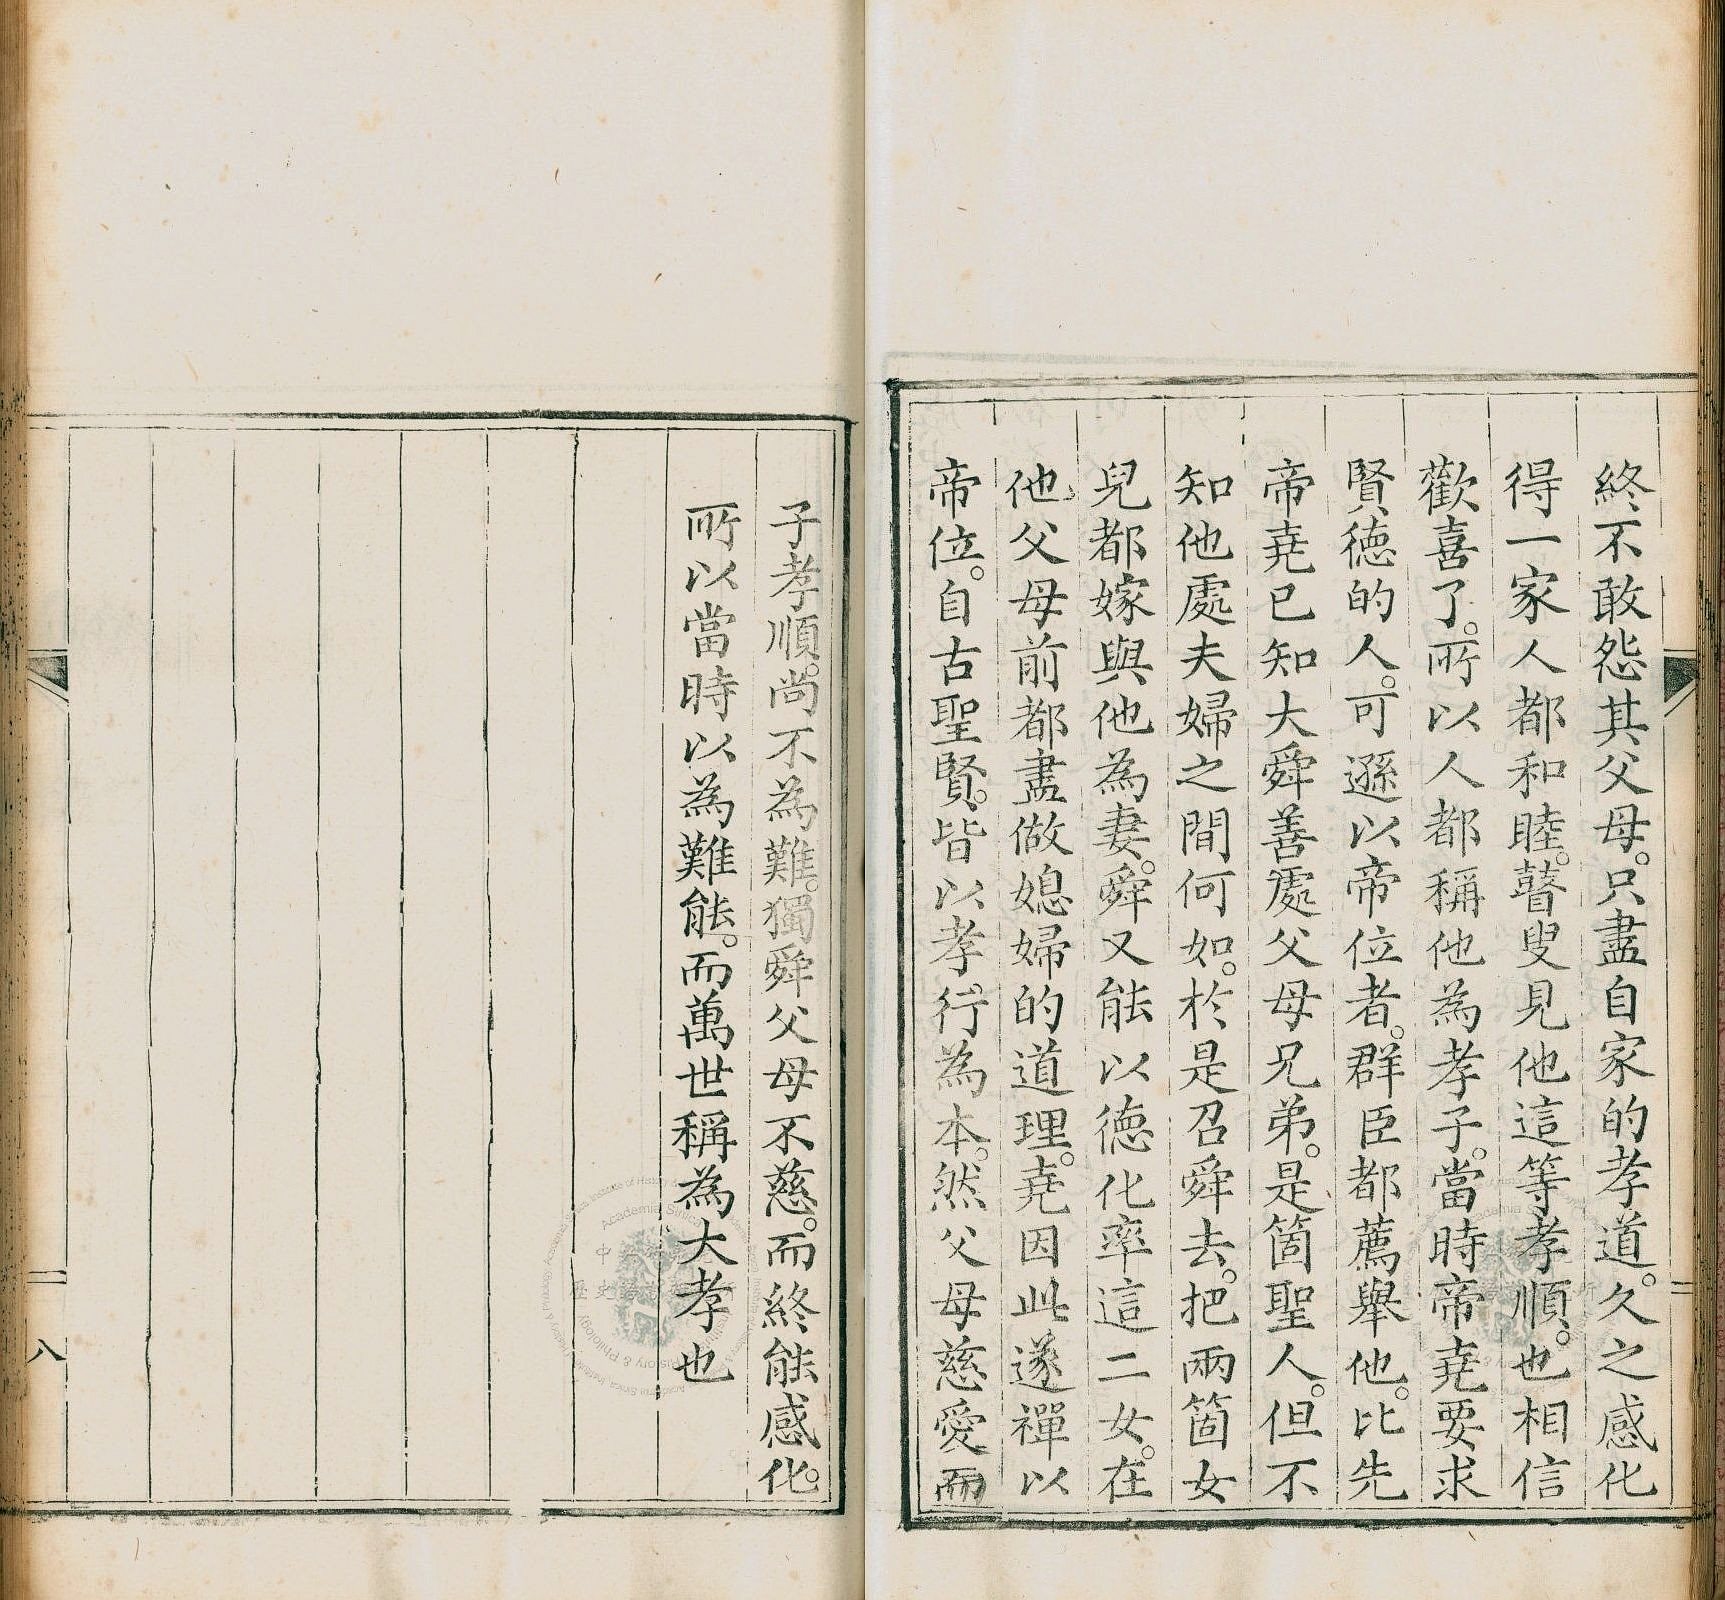 終不敢怨其父母。只盡自家的孝道。久之感化
得一家人都和睦。瞽叟見他這等孝順。也相信
歡喜了。所以人都稱他為孝子。當時帝堯要求
賢德的人。可遜以帝位者。群臣都薦舉他。比先
帝堯已知大舜善處父母兄弟。是箇聖人。但不
知他處夫婦之間何如。於是召舜去。把兩箇女
兒都嫁與他為妻。舜又能以德化率這二女。在
他父母前都盡做媳婦的道理。堯因此遂禪以
帝位。自古聖賢。皆以孝行為本。然父母慈愛而
子孝順。尚不為難。獨舜父母不慈。而終能感化。
所以當時以為難能。而萬世稱為大孝也
八